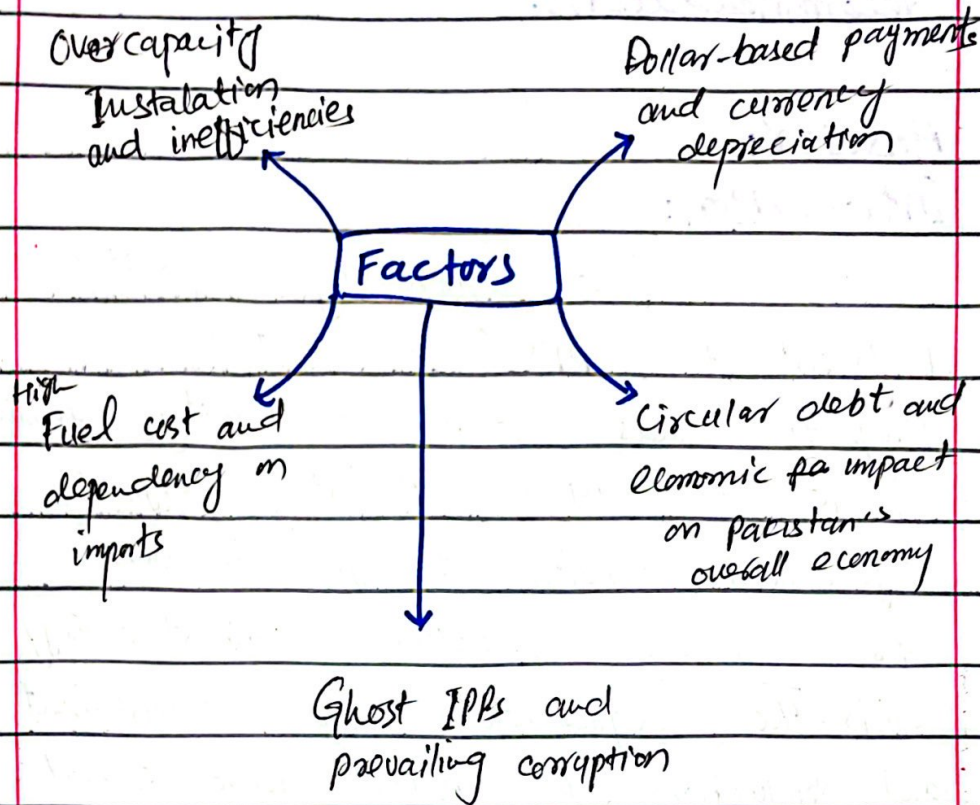 Overcapacity
Instalation
and inefficiencies
Dollar-based payments
and currency
depreciation
Factors
High
Fuel cost and
dependency on
imports
Circular debt and
economic impact
on Pakistan's
overall economy
Ghost IPPs and
prevailing corruption